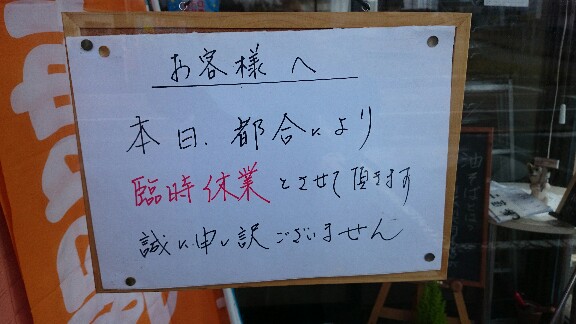 お客様へ
本日、都合により
臨時休業とさせて頂きます
誠に申し訳ございません
油そば